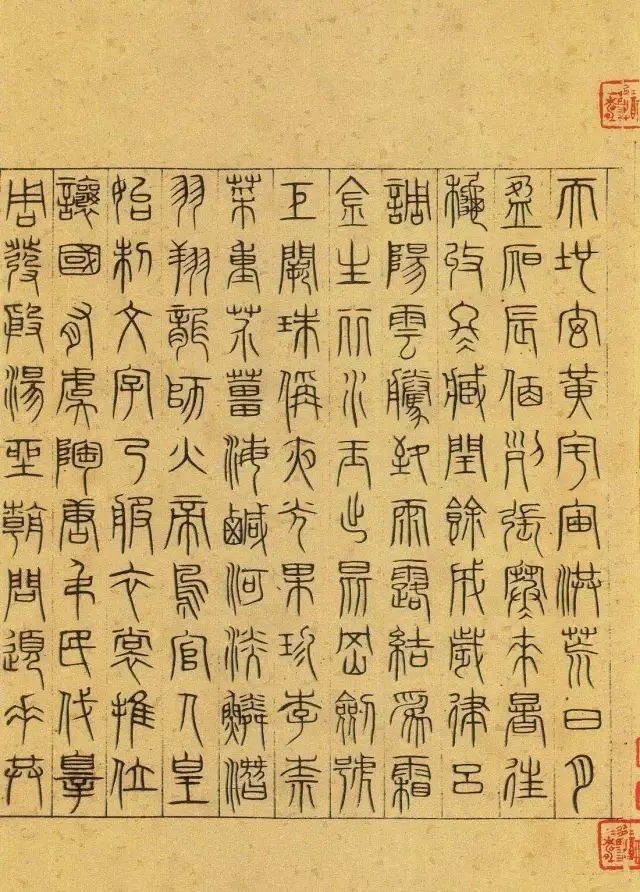 天地玄黃宇宙洪荒日月
盈昃辰宿列張寒來暑往
穐收冬藏閏餘成歲律呂
調陽雲騰致雨露結爲霜
金生麗水玉出昆岡劍號
巨闕珠稱夜光果珍李柰
菜重芥薑海鹹河淡鱗潛
羽翔龍師火帝鳥官人皇
始制文字乃服衣裳推位
讓國有虞陶唐弔民伐辠
周發殷湯坐朝問道垂拱